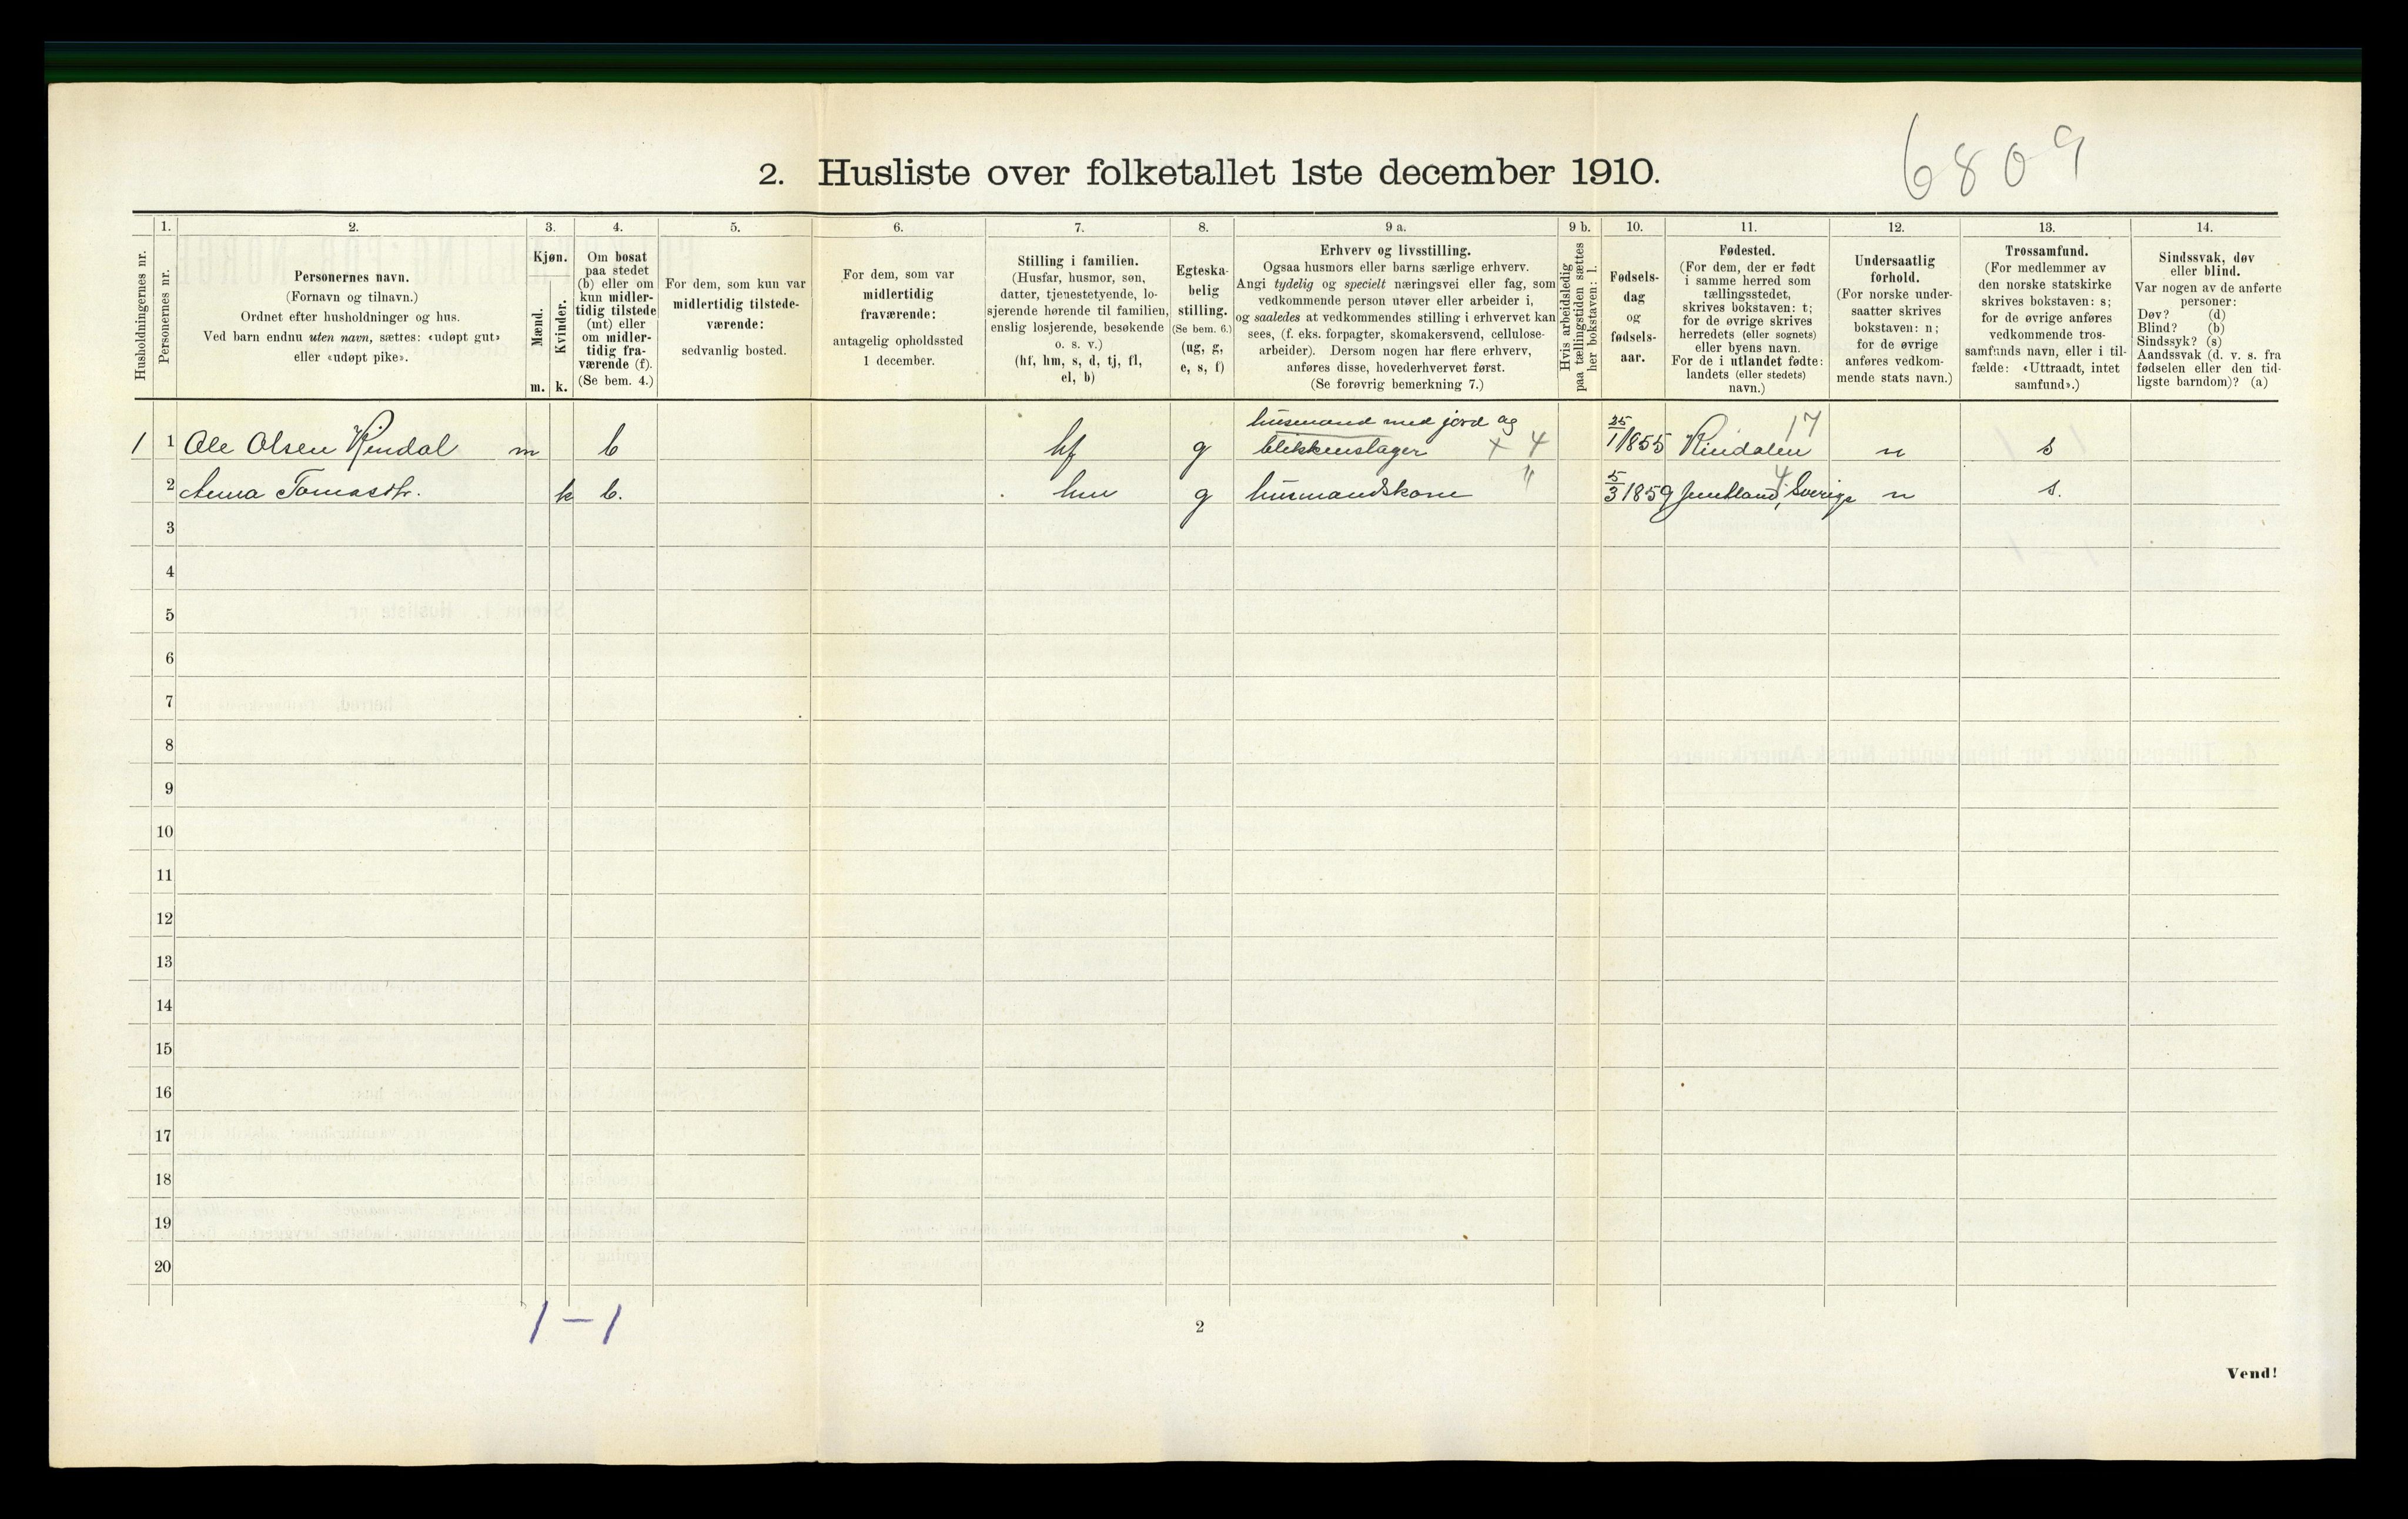 6809
2. Husliste over folketallet 1ste december 1910.
Husholdningernes nr.
1.
Personernes nr.
2.
Personernes navn.
(Fornavn og tilnavn.)
Ordnet efter husholdninger og hus.
Ved barn endnu uten navn, sættes: «udøpt gut»
eller «udøpt pike».
3.
Kjøn.
Mænd.
m.
Kvinder.
k.
4.
Om bosat
paa stedet
(b) eller om
kun midler-
tidig tilstede
(mt) eller
om midler-
tidig fra-
værende (f).
(Se bem. 4.)
5.
For dem, som kun var
midlertidig tilstede-
værende:
sedvanlig bosted.
6.
For dem, som var
midlertidig
fraværende:
antagelig opholdssted
1 december.
7.
Stilling i familien.
(Husfar, husmor, søn,
datter, tjenestetyende, lo-
sjerende hørende til familien,
enslig losjerende, besøkende
o. s. v.)
(hf, hm, s, d, tj, fl,
el, b)
8.
Egteska-
belig
stilling.
(Se bem. 6.)
(ug, g,
e, s, f)
9 a.
Erhverv og livsstilling.
Ogsaa husmors eller barns særlige erhverv.
Angi tydelig og specielt næringsvei eller fag, som
vedkommende person utøver eller arbeider i,
og saaledes at vedkommendes stilling i erhvervet kan
sees, (f. eks. forpagter, skomakersvend, cellulose-
arbeider). Dersom nogen har flere erhverv,
anføres disse, hovederhvervet først.
(Se forøvrig bemerkning 7.)
9 b.
Hvis arbeidsledig
paa tællingstiden sættes
her bokstaven: l.
10.
Fødsels-
dag
og
fødsels-
aar.
11.
Fødested.
(For dem, der er født
i samme herred som
tællingsstedet,
skrives bokstaven: t;
for de øvrige skrives
herredets (eller sognets)
eller byens navn.
For de i utlandet fødte:
landets (eller stedets)
navn.)
12.
Undersaatlig
forhold.
(For norske under-
saatter skrives
bokstaven: n;
for de øvrige
anføres vedkom-
mende stats navn.)
13.
Trossamfund.
(For medlemmer av
den norske statskirke
skrives bokstaven: s;
for de øvrige anføres
vedkommende tros-
samfunds navn, eller i til-
fælde: «Uttraadt, intet
samfund».)
14.
Sindssvak, døv
eller blind.
Var nogen av de anførte
personer:
Døv? (d)
Blind? (b)
Sindssyk? (s)
Aandssvak (d. v. s. fra
fødselen eller den tid-
ligste barndom)? (a)
husmand med jord og
1 1 Ole Olsen Rindal m b hf g blikkenslager x 4 25/1 1855 Rindalen 17 n s
2 Anna Tomasdtr. k b. hm g husmandskone " 5/3 1859 Jemtland, Sverige 4 n s.
3
4
5
6
7
8
9
10
11
12
13
14
15
16
17
18
19
20
1 – 1
2
Vend!